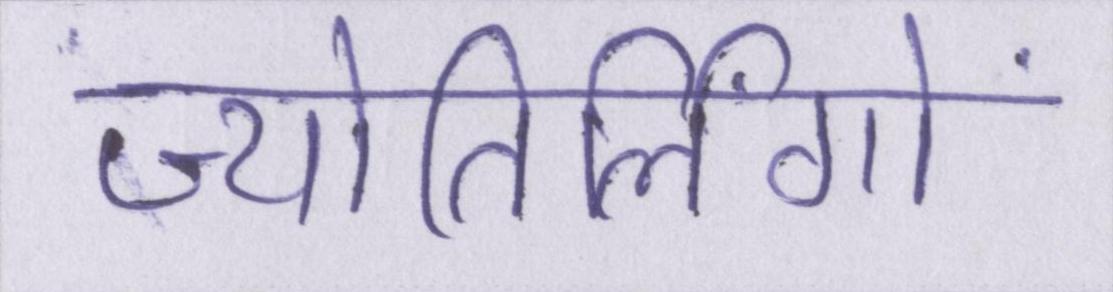 ज्योतिर्लिंगों